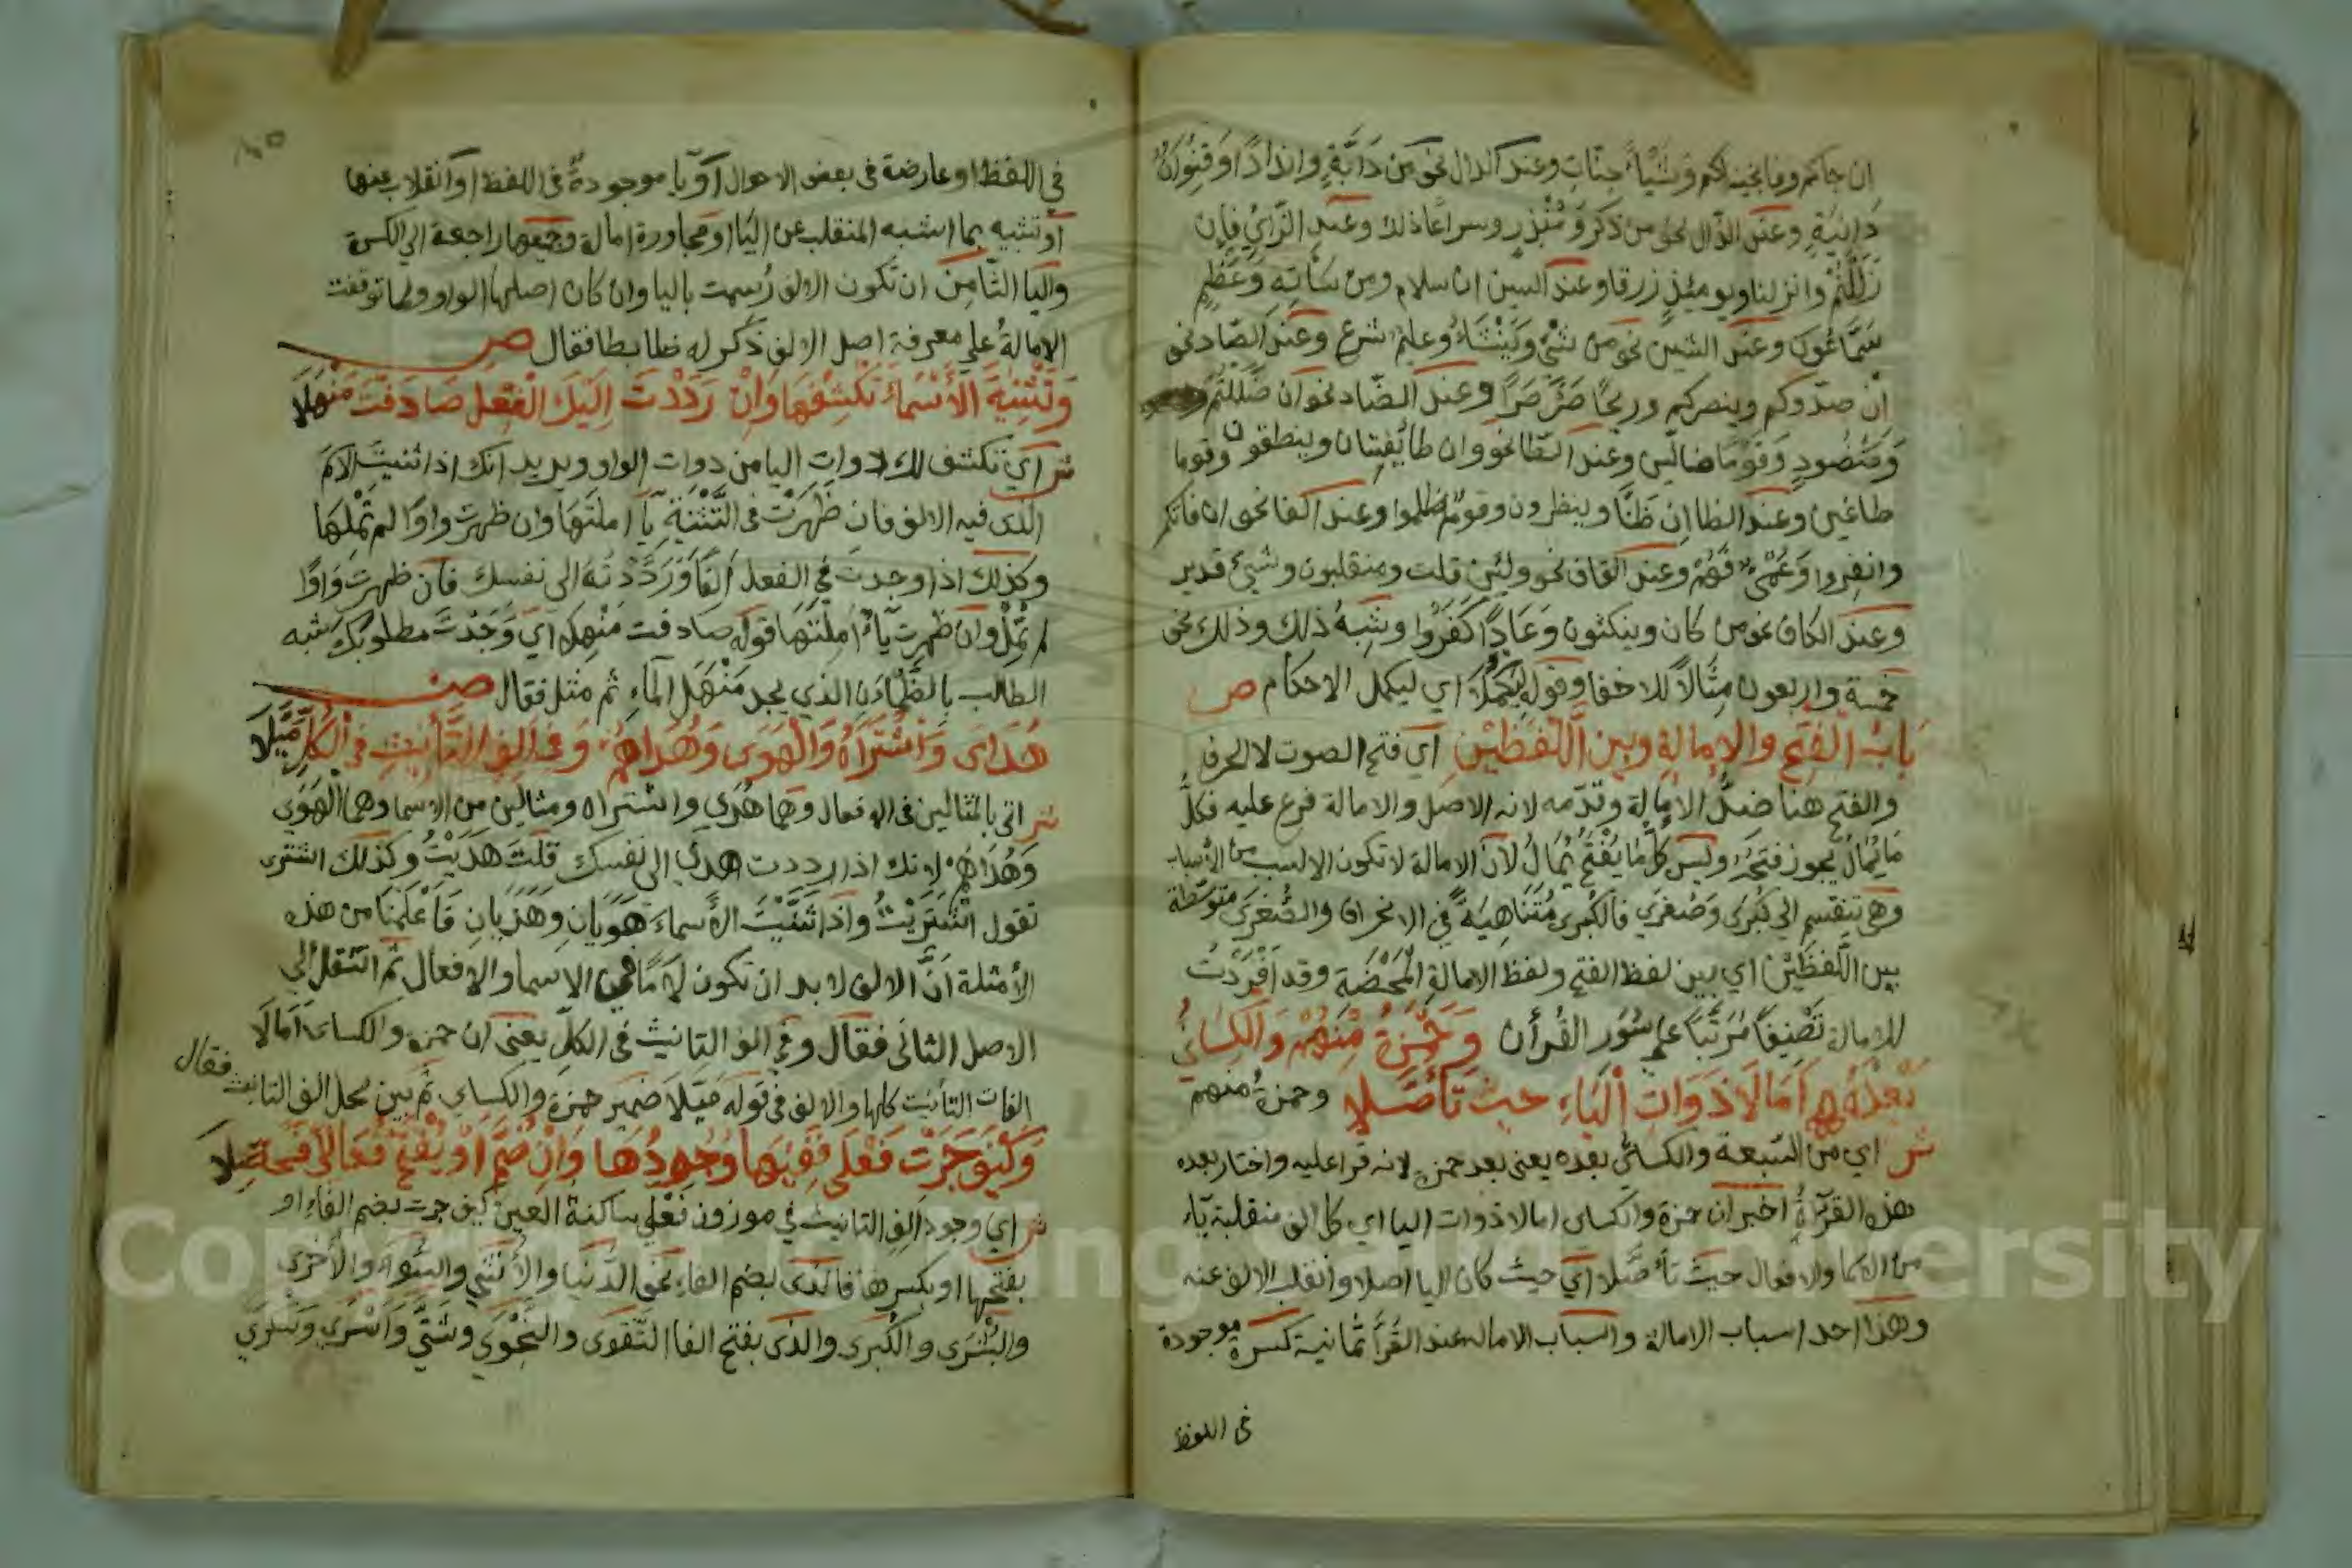 ان جاكم وما نجينه لكم وشيئا جنات وعند الدال نحو من دابة واندادا وقنوان
دانية وعند الذال نحو من ذكر ومنذر وسراعا ذلك وعند الزاي فإن
زللتم وانزلنا ويومئذ زرقا وعند السين ان سلام ومن سأته وعظيم
سماعون وعند الشين نحو من شئ وينشاء وعليم شرع وعند الصاد نحو
أن صدوكم وينصركم وريحا صرصرا وعند الضاد نحو ان ضللتم
ومنضود وقوما ضالين وعند الطا نحو وان طائفتان وينطقون وقوما
طاغين وعند الظا إن ظنا وينظرون وقوم ظلموا وعند الفا نحو ان فاتكم
وانفروا وعمي فهم وعند القاف نحو ولئن قلت ومنقلبون وشيئ قدير
وعند الكاف نحو من كان وينكثون وعادا كفروا وشبه ذلك وذلك نحو
خمسة واربعون مثالا للاخفا وقوله ليكملا اي ليكمل الاحكام ص
باب الفتح والإمالة وبين اللفظين اي فتح الصوت لا الحرف
والفتح هنا ضد الإمالة وقدمه لانه الاصل والامالة فرع عليه فكل
ما يمال يجوز فتحه وليس كل ما يفتح يمال لأن الامالة لا تكون الا لسبب من الأسباب
وهي تنقسم الى كبرى وصغرى فالكبرى متناهية في الانحراف والصغرى متوسطة
بين اللفظين اي بين لفظ الفتح ولفظ الامالة المحضة وقد أفردت
للامالة تصنيفا مرتبا على سور القرأن وحمزة منهم والكسائي
بعده أمالا ذوات الياء حيث تأصلا وحمزة منهم
ش اي من السبعة والكسائي بعده يعنى بعد حمزة لانه قرا عليه واختار بعده
هذه القرآة أخبر ان حمزة والكساى امالا ذوات اليا اي كل الف منقلبة ياء
من الاسما والافعال حيث تأصلا اي حيث كان اليا اصلا وانقلب الالف عنه
وهذا احد اسباب الامالة واسباب الامالة عند القرأ ثمانية كسرة موجودة
فى اللفظ
في اللفظ او عارضة فى بعض الاحوال أو يا موجودة فى اللفظ او انقلاب عنها
أو تشبيه بما اشبه المنقلب عن اليا او مجاورة امالة وجميعها راجعة الي الكسرة
واليا الثامن ان تكون الالف رسمت باليا وان كان اصلها الواو ولما توقفت
الإمالة على معرفة اصل الالف ذكر له ضابطا فقال ص
وتثنية الأسماء تكشفها وإن رددت إليك الفعل صادفت منهلا
ش اي تكشف لك ذوات اليا من ذوات الواو ويريد انك اذا ثنيت الاسم
الذى فيه الالف فان ظهرت فى التثنية يآ املتها وان ظهرت واوا لم تملها
وكذلك اذا وجدت في الفعل ألفا ورددته الى نفسك فان ظهرت واوا
لم تمل وان ظهرت ياء أملتها قوله صادفت منهلا اي وجدت مطلوبك شبه
الطالب بالظمآن الذي يجد منهل الماء ثم مثل فقال ص
هدى واشتراه والهوى وهداهم وفى ألف التأنيث في الكل ميلا
ش اتى بالمثالين فى الافعال وهما هدي واشتراه ومثالين من الاسما وهما الهوي
وهداهم لانك اذا رددت هدي الى نفسك قلت هديت وكذلك اشترى
تقول اشتريت واذا ثنيت الأسماء هويان وهديان فأعلمنا من هذه
الأمثلة أن الالف لا بد ان تكون لاما في الاسما والافعال ثم انتقل الي
الاصل الثانى فقال وفي الف التانيث فى الكل يعنى ان حمزة والكساى أمالا
الفات التأنيث كلها والالف فى قوله ميلا ضمير حمزة والكساي ثم بين محل الف التانيث فقال
وكيف جرت فعلى ففيها وجودها وإن ضم أو يفتح فعالى فحصلا
ش اي وجود الف التانيث في موزون فعلى ساكنة العين كيف جرت بضم الفاء او
بفتحها او بكسرها فالذى بضم الفاء نحو الدنيا والأنثي والسوأى والأخرى
والبشرى والكبرى والذى بفتح الفا التقوى والنجوى وشتى وأسرى وسكرى